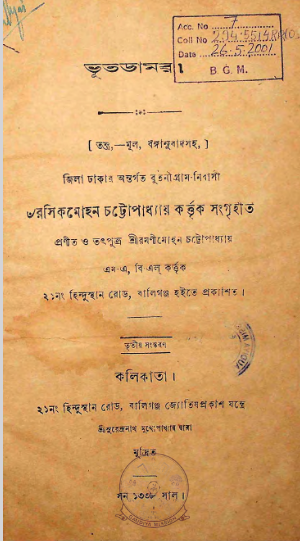 Acc. No 7
Coll No
Date 26.5.2001
B. G. M.
ভূতডামর।
[ তন্ত্র,—মূল, বঙ্গানুবাদসহ, ]
জিলা ঢাকার অন্তর্গত বুতনীগ্রাম-নিবাসী
৺রসিকমোহন চট্টোপাধ্যায় কর্ত্তৃক সংগৃহীত
প্রণীত ও তৎপুত্র শ্রীরমণীমোহন চট্টোপাধ্যায়
এম-এ, বি-এল্ কর্ত্তৃক
২১নং হিন্দুস্থান রোড, বালিগঞ্জ হইতে প্রকাশিত।
তৃতীয় সংস্করণ
কলিকাতা।
২১নং হিন্দুস্থান রোড, বালিগঞ্জ জ্যোতিষপ্রকাশ যন্ত্রে
শ্রীসুরেন্দ্রনাথ মুখোপাধ্যায় দ্বারা
মুদ্রিত
সন ১৩৩৮ সাল।